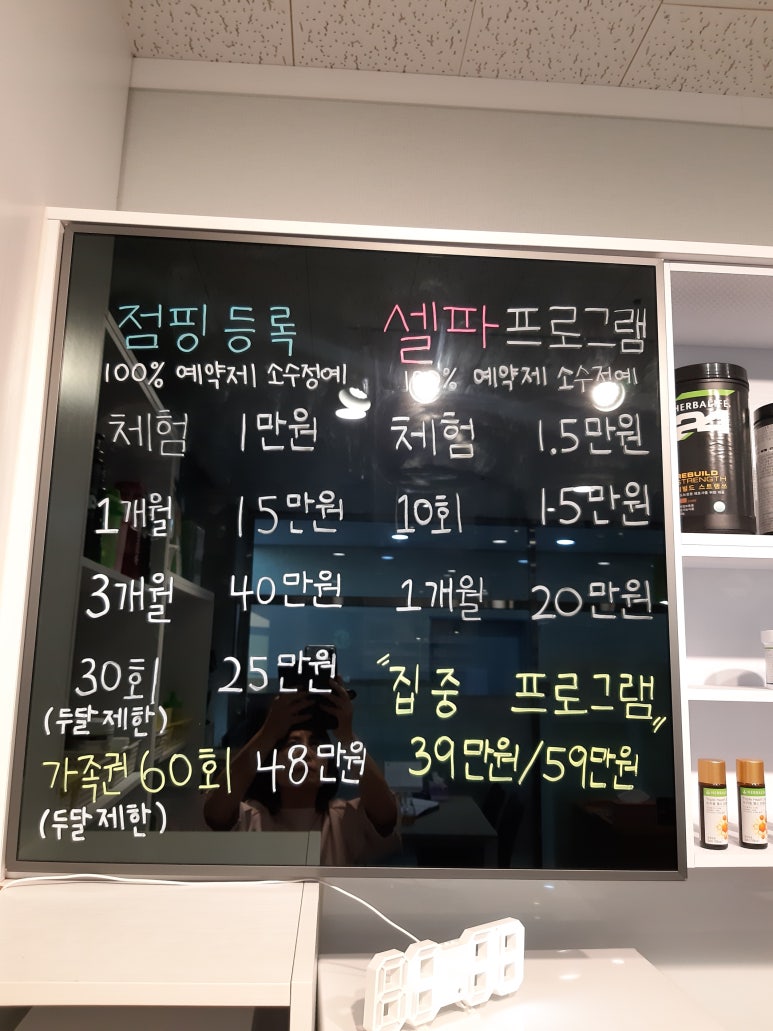 점핑 등록
100% 예약제 소수정예
체험 1만원
1개월 15만원
3개월 40만원
30회 25만원
(두달 제한)
가족권 60회 48만원
(두달 제한)
셀파 프로그램
100% 예약제 소수정예
체험 1.5만원
10회 15만원
1개월 20만원
"집중 프로그램"
39만원/59만원
HERBALIFE
24
REBUILD
STRENGTH
리빌드 스트렝쓰
HERBALIFE